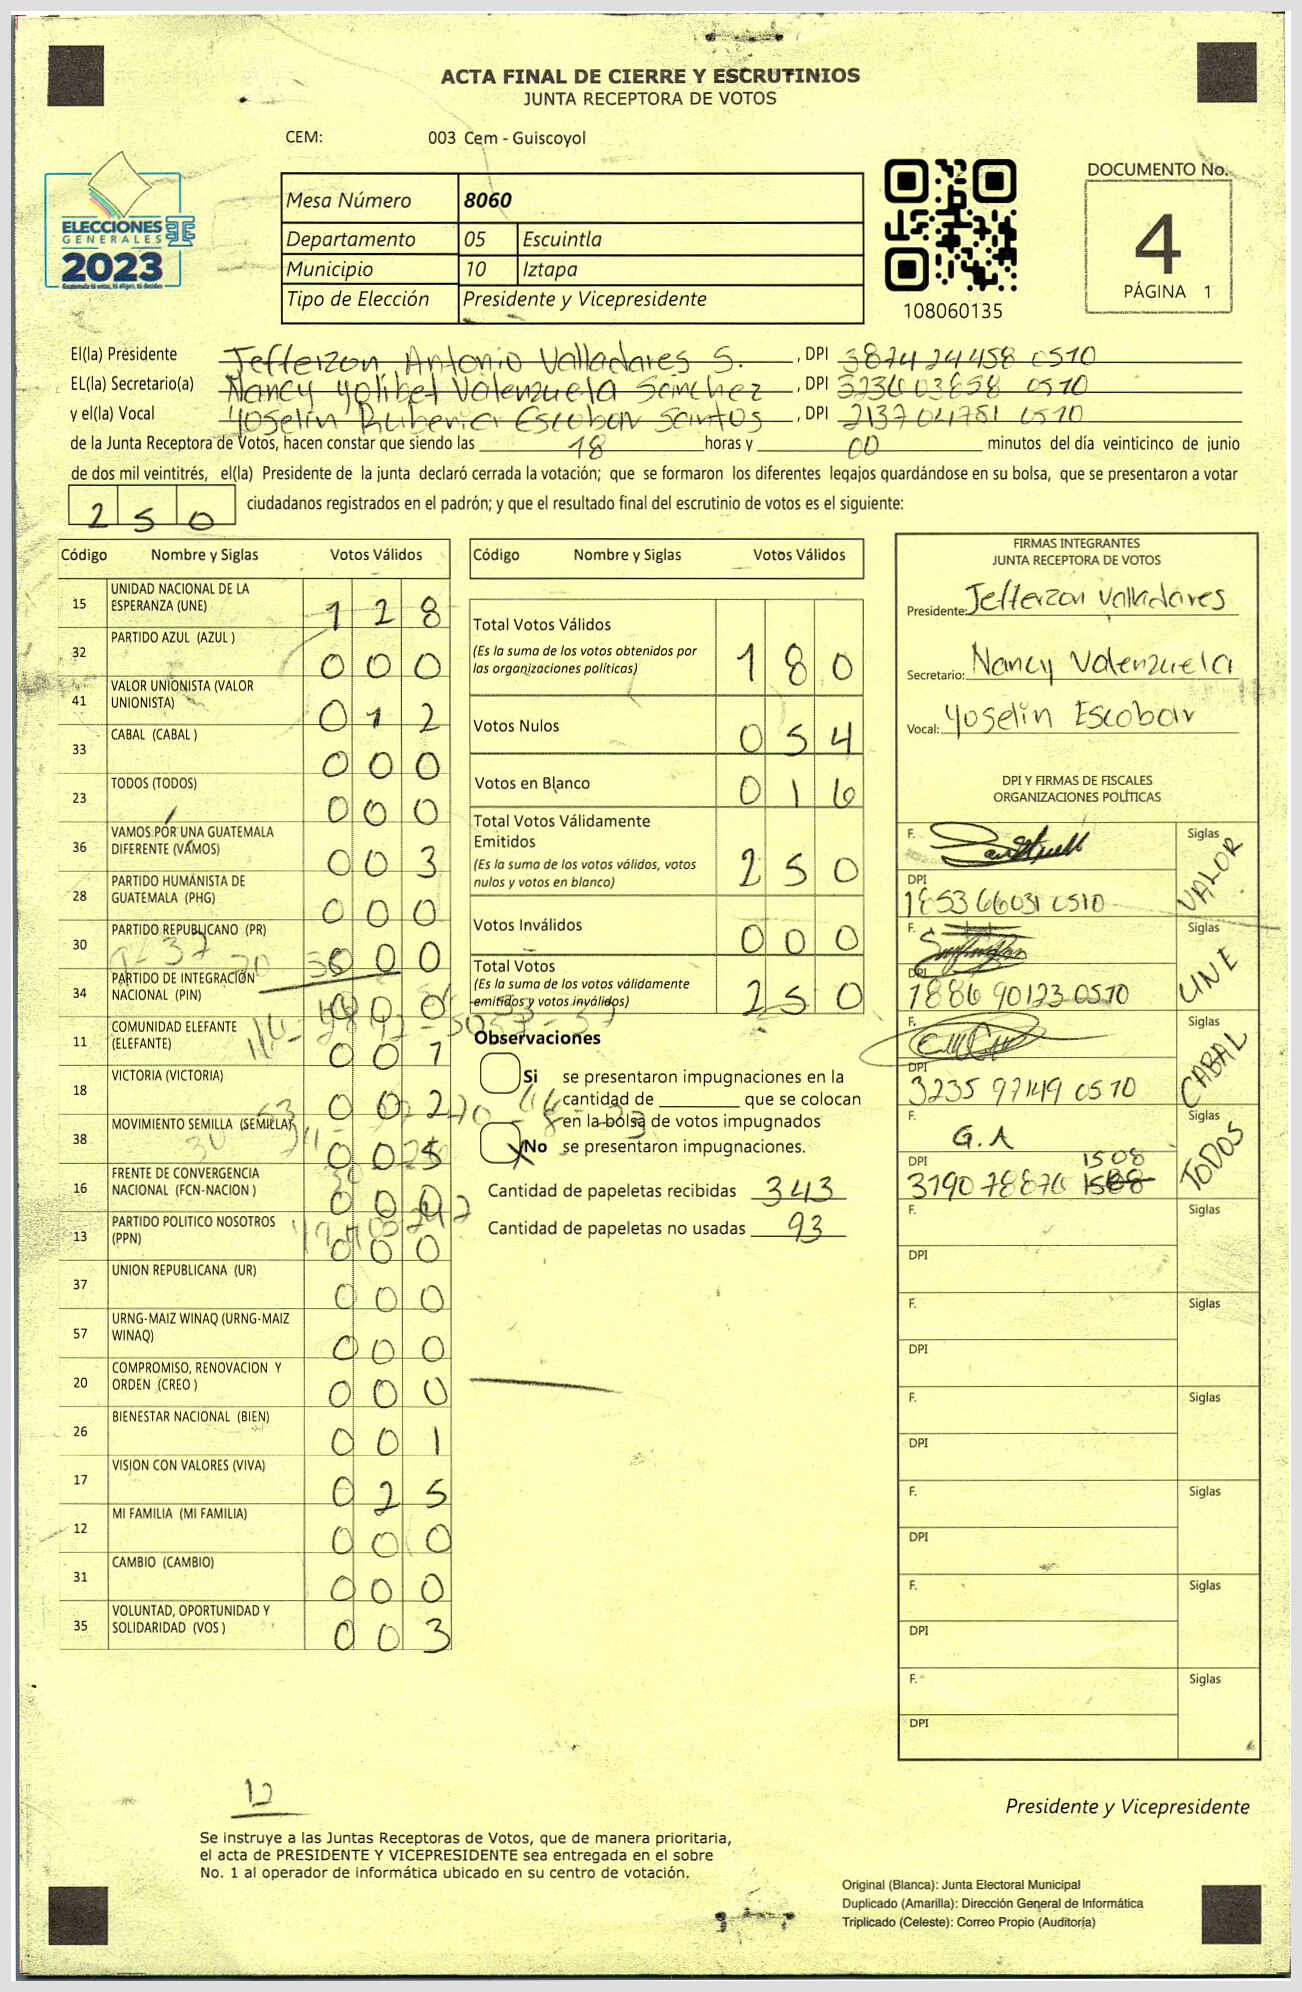 ACTA FINAL DE CIERRE Y ESCRUTINIOS
JUNTA RECEPTORA DE VOTOS
CEM: 003 Cem - Guiscoyol
ELECCIONES
GENERALES
2023
Mesa Número 8060
Departamento 05 Escuintla
Municipio 10 Iztapa
Tipo de Elección Presidente y Vicepresidente
108060135
DOCUMENTO No.
4
PÁGINA 1
El(la) Presidente Jefferzon Antonio Valladares S. , DPI 3874 24458 0510
EL(la) Secretario(a) Nancy Yolibet Valenzuela Sánchez , DPI 323603858 0510
y el(la) Vocal Yoselin Escobar Santos , DPI 2137 04781 0510
de la Junta Receptora de Votos, hacen constar que siendo las 18 horas y 00 minutos del día veinticinco de junio
de dos mil veintitrés, el(la) Presidente de la junta declaró cerrada la votación; que se formaron los diferentes legajos quardándose en su bolsa, que se presentaron a votar
250 ciudadanos registrados en el padrón; y que el resultado final del escrutinio de votos es el siguiente:
Código Nombre y Siglas Votos Válidos
15 UNIDAD NACIONAL DE LA ESPERANZA (UNE) 1 2 8
32 PARTIDO AZUL (AZUL ) 0 0 0
41 VALOR UNIONISTA (VALOR UNIONISTA) 0 1 2
33 CABAL (CABAL ) 0 0 0
23 TODOS (TODOS) 0 0 0
36 VAMOS POR UNA GUATEMALA DIFERENTE (VAMOS) 0 0 3
28 PARTIDO HUMANISTA DE GUATEMALA (PHG) 0 0 0
30 PARTIDO REPUBLICANO (PR) 0 0 0
34 PARTIDO DE INTEGRACIÓN NACIONAL (PIN) 0 0 0
11 COMUNIDAD ELEFANTE (ELEFANTE) 0 0 1
18 VICTORIA (VICTORIA) 0 0 2
38 MOVIMIENTO SEMILLA (SEMILLA) 0 0 5
16 FRENTE DE CONVERGENCIA NACIONAL (FCN-NACION ) 0 0 0
13 PARTIDO POLITICO NOSOTROS (PPN) 0 0 0
37 UNION REPUBLICANA (UR) 0 0 0
57 URNG-MAIZ WINAQ (URNG-MAIZ WINAQ) 0 0 0
20 COMPROMISO, RENOVACION Y ORDEN (CREO ) 0 0 0
26 BIENESTAR NACIONAL (BIEN) 0 0 1
17 VISION CON VALORES (VIVA) 0 2 5
12 MI FAMILIA (MI FAMILIA) 0 0 0
31 CAMBIO (CAMBIO) 0 0 0
35 VOLUNTAD, OPORTUNIDAD Y SOLIDARIDAD (VOS ) 0 0 3
Código Nombre y Siglas Votos Válidos
Total Votos Válidos 1 8 0
(Es la suma de los votos obtenidos por
las organizaciones políticas)
Votos Nulos 0 5 4
Votos en Blanco 0 1 6
Total Votos Válidamente
Emitidos 2 5 0
(Es la suma de los votos válidos, votos
nulos y votos en blanco)
Votos Inválidos 0 0 0
Total Votos 2 5 0
(Es la suma de los votos válidamente
emitidos y votos inválidos)
Observaciones
Si se presentaron impugnaciones en la
cantidad de ________ que se colocan
en la bolsa de votos impugnados
X No se presentaron impugnaciones.
Cantidad de papeletas recibidas 343
Cantidad de papeletas no usadas 93
FIRMAS INTEGRANTES
JUNTA RECEPTORA DE VOTOS
Presidente: Jefferzon Valladares
Secretario: Nancy Valenzuela
Vocal: Yoselin Escobar
DPI Y FIRMAS DE FISCALES
ORGANIZACIONES POLÍTICAS
F. Siglas VALOR
DPI 1853 66031 0510
F. Siglas UNE
DPI 1886 90123 0510
F. Siglas CABAL
DPI 3235 97149 0510
F. G.A Siglas TODOS
DPI 3190 78876 1508
F. Siglas
DPI
F. Siglas
DPI
F. Siglas
DPI
F. Siglas
DPI
F. Siglas
DPI
F. Siglas
DPI
12
Presidente y Vicepresidente
Se instruye a las Juntas Receptoras de Votos, que de manera prioritaria,
el acta de PRESIDENTE Y VICEPRESIDENTE sea entregada en el sobre
No. 1 al operador de informática ubicado en su centro de votación.
Original (Blanca): Junta Electoral Municipal
Duplicado (Amarilla): Dirección General de Informática
Triplicado (Celeste): Correo Propio (Auditoría)